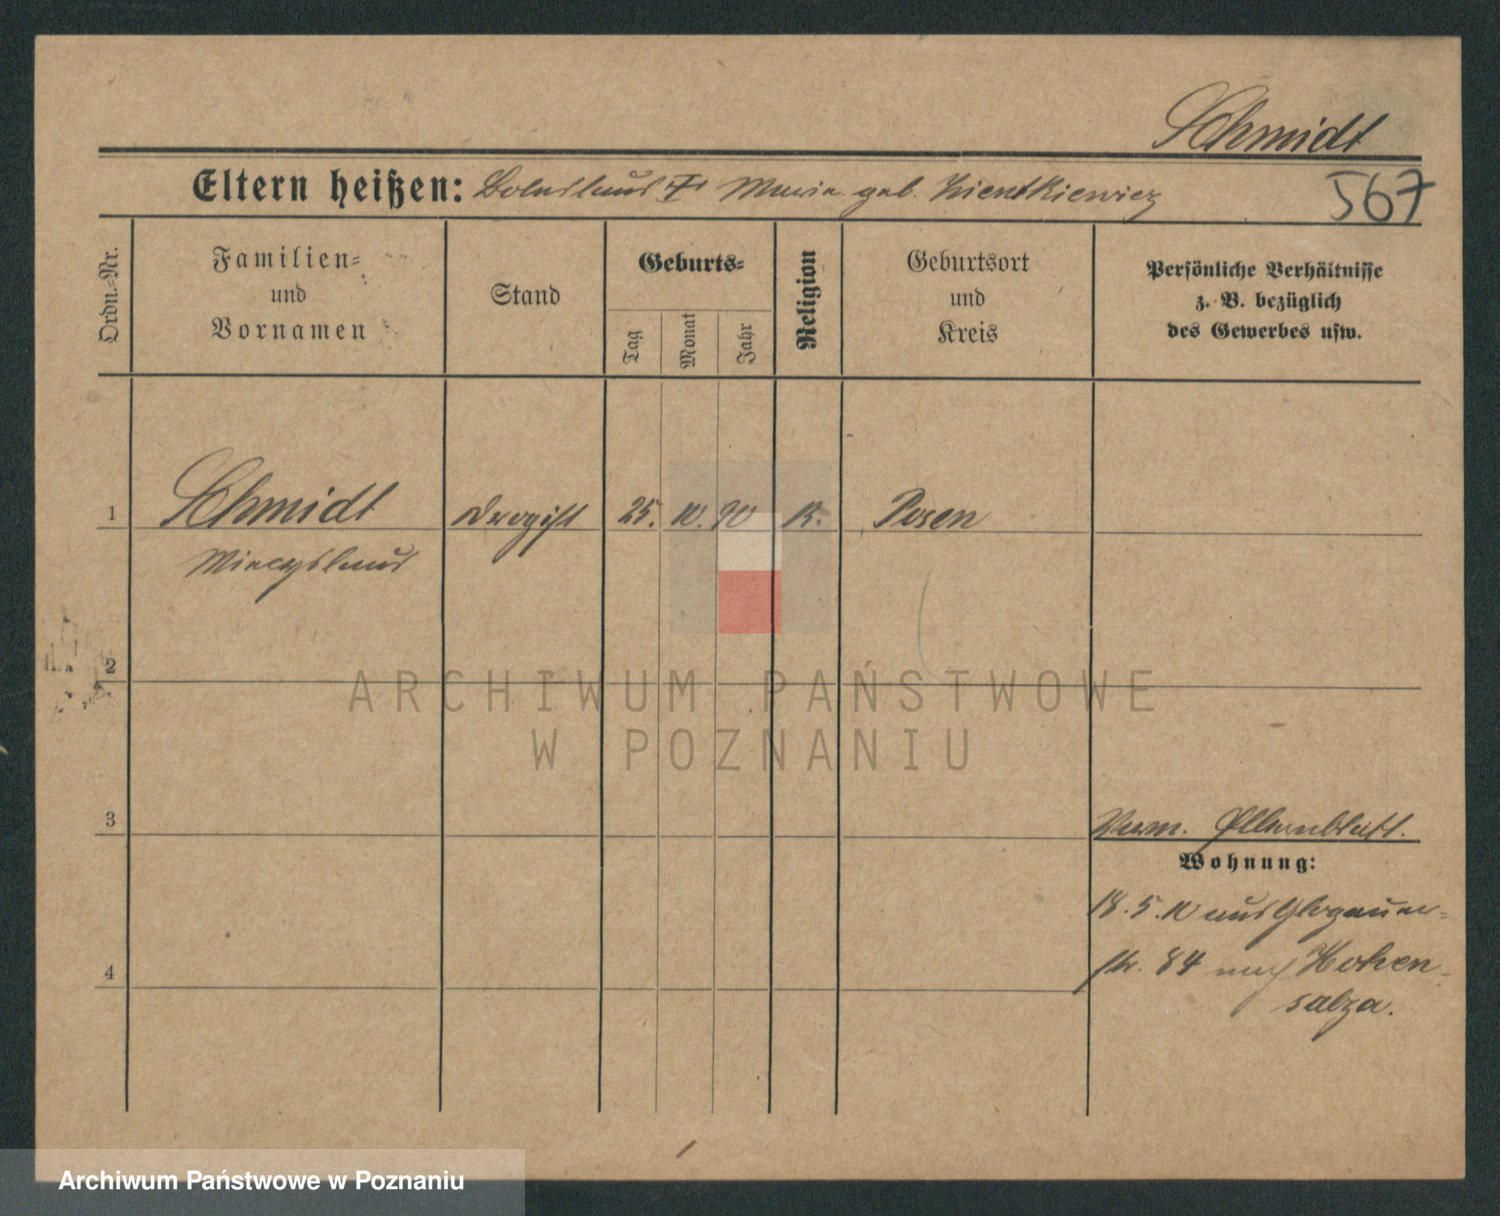 Schmidt
Eltern heißen: Boleslaus † Maria geb.
567
Ordn.-Nr.
Familien-
und
Vornamen
Stand
Geburts-
Tag
Monat
Jahr
Religion
Geburtsort
und
Kreis
Persönliche Verhältnisse
z. B. bezüglich
des Gewerbes usw.
1 Schmidt Drogist 25. 10. 90 K. Posen
Miecyslaus
2
ARCHIWUM PAŃSTWOWE
W POZNANIU
3
Verm. Elternblatt.
Wohnung:
18.5.10 aus Glogauer-
4
str. 84 nach Hohen-
salza.
Archiwum Państwowe w Poznaniu